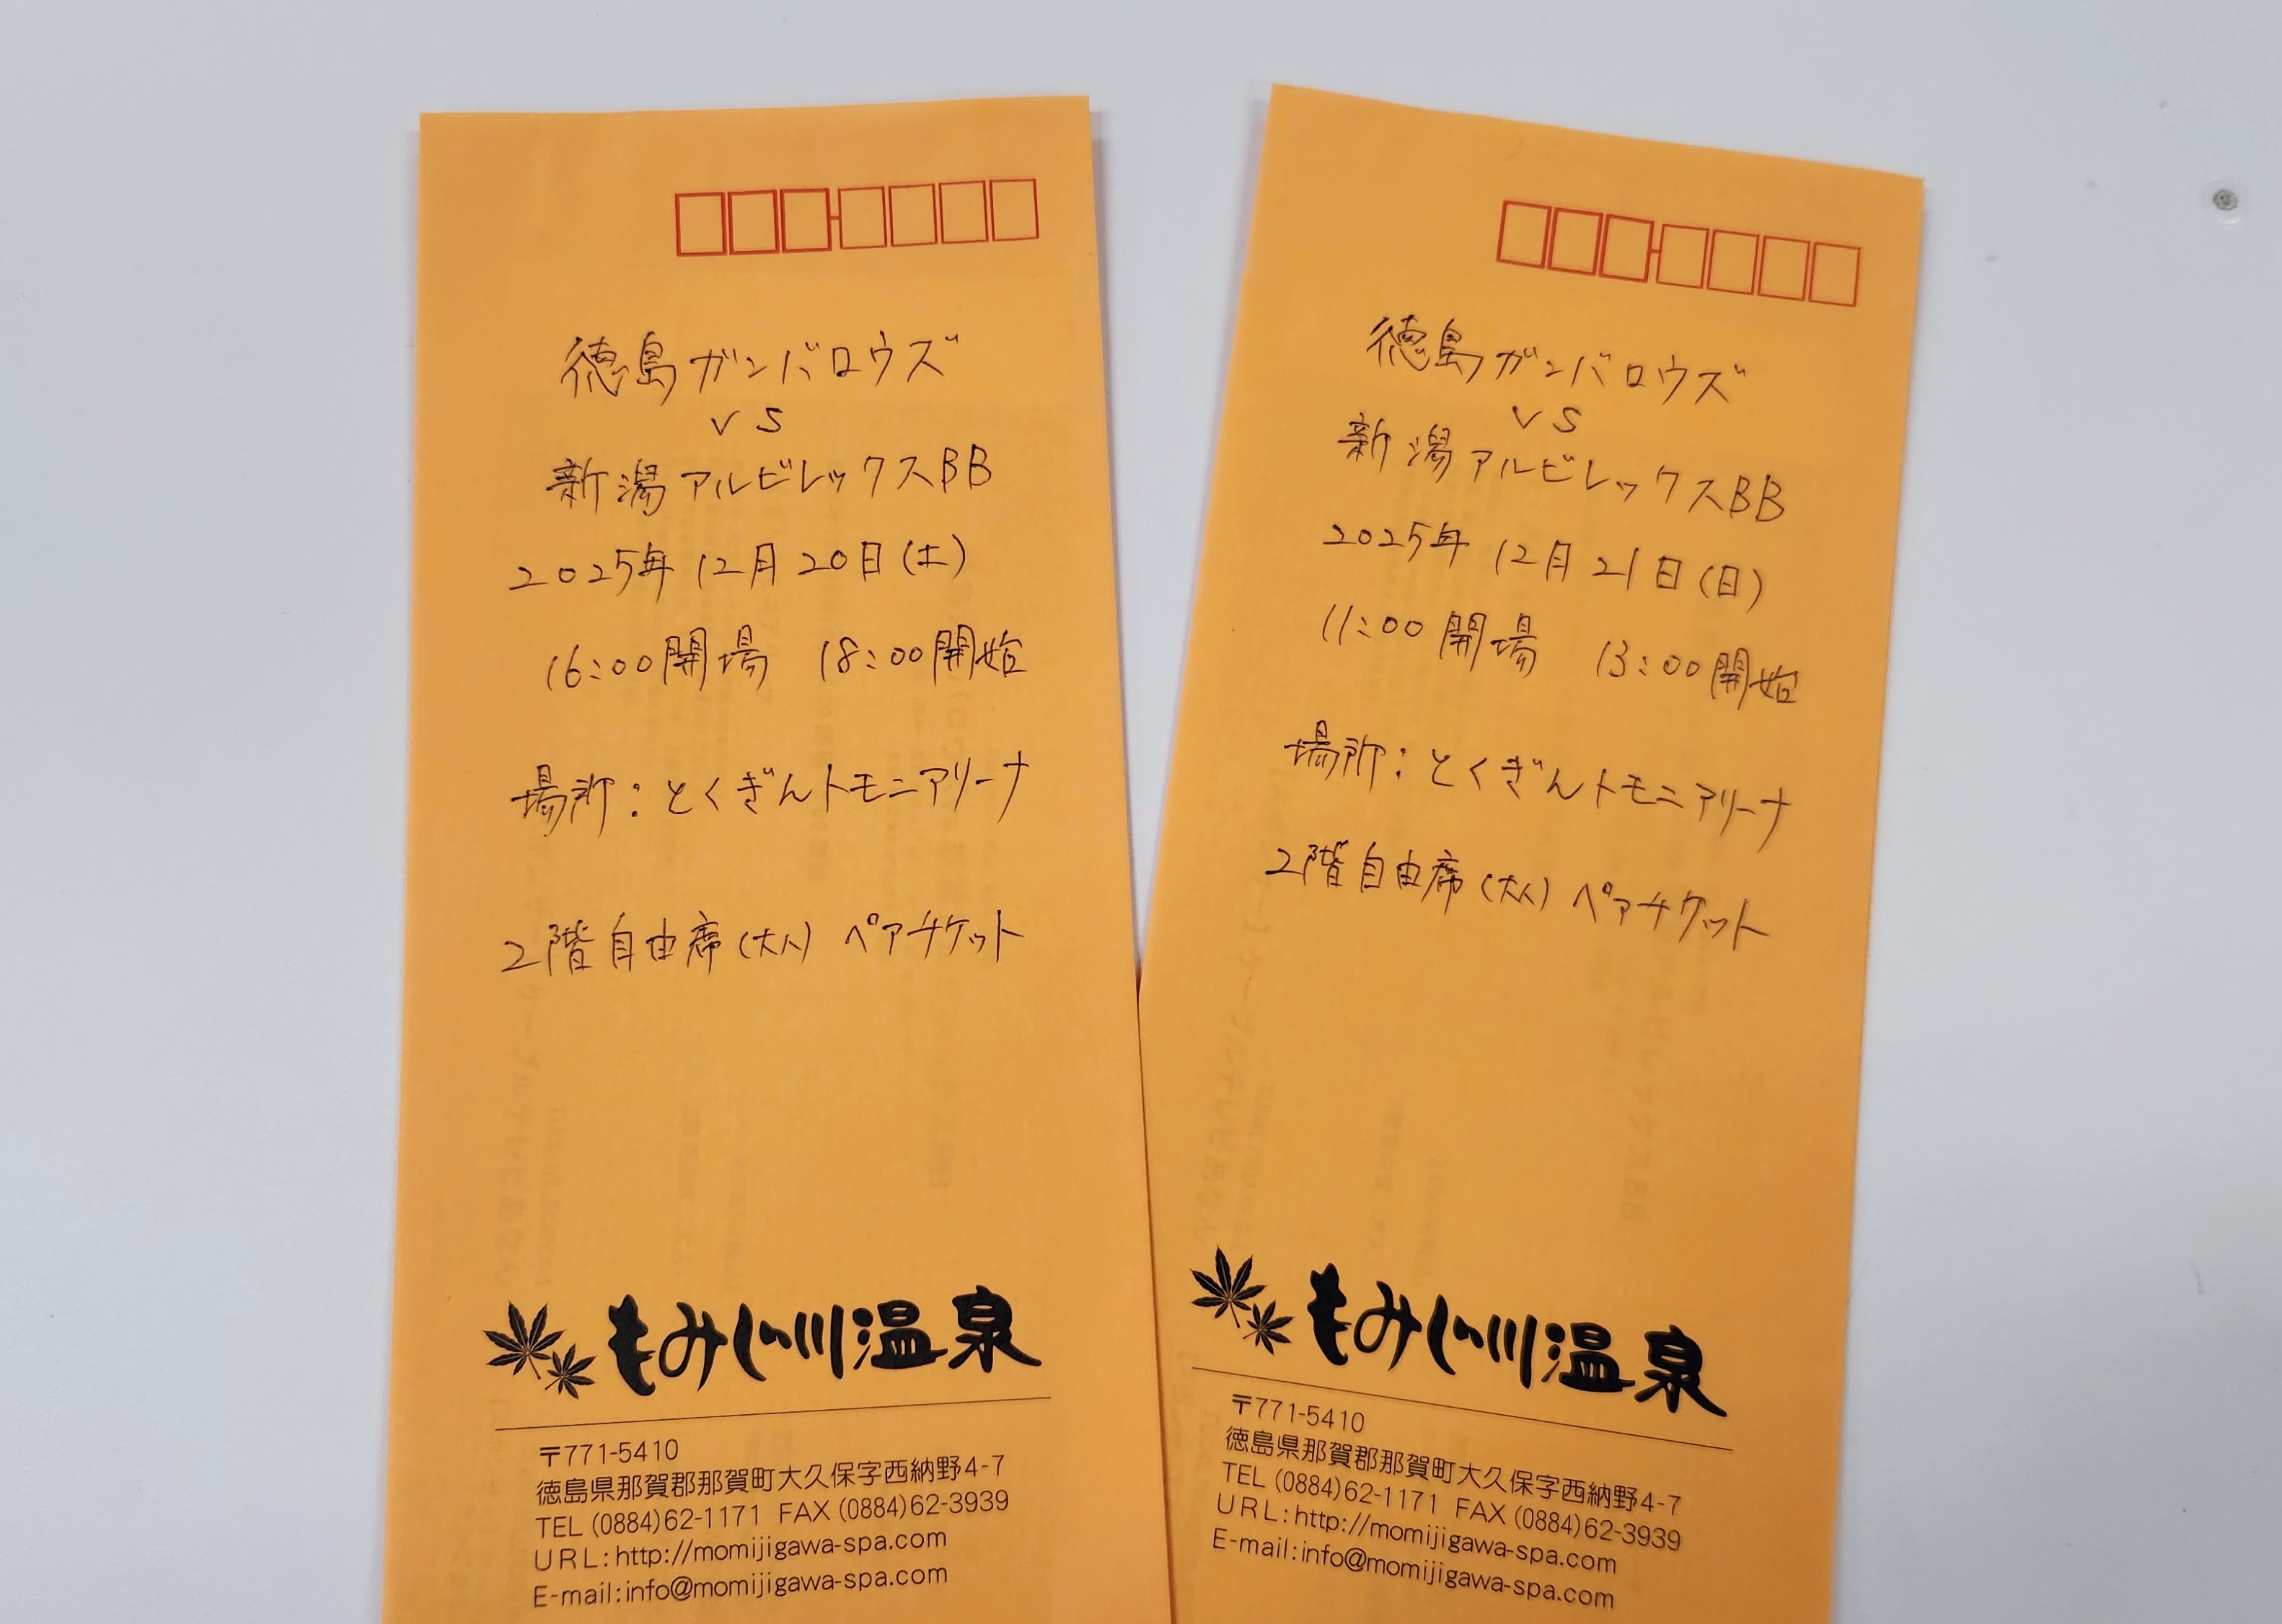 徳島ガンバロウズ
VS
新潟アルビレックスBB
2025年 12月 20日(土)
16:00開場 18:00開始
場所:とくぎんトモニアリーナ
2階自由席(大人) ペアチケット
もみじ川温泉
〒771-5410
徳島県那賀郡那賀町大久保字西納野4-7
TEL (0884)62-1171 FAX (0884)62-3939
URL:http://momijigawa-spa.com
E-mail:info@momijigawa-spa.com
徳島ガンバロウズ
VS
新潟アルビレックスBB
2025年 12月 21日(日)
11:00開場 13:00開始
場所:とくぎんトモニアリーナ
2階自由席(大人) ペアチケット
もみじ川温泉
〒771-5410
徳島県那賀郡那賀町大久保字西納野4-7
TEL (0884)62-1171 FAX (0884)62-3939
URL:http://momijigawa-spa.com
E-mail:info@momijigawa-spa.com